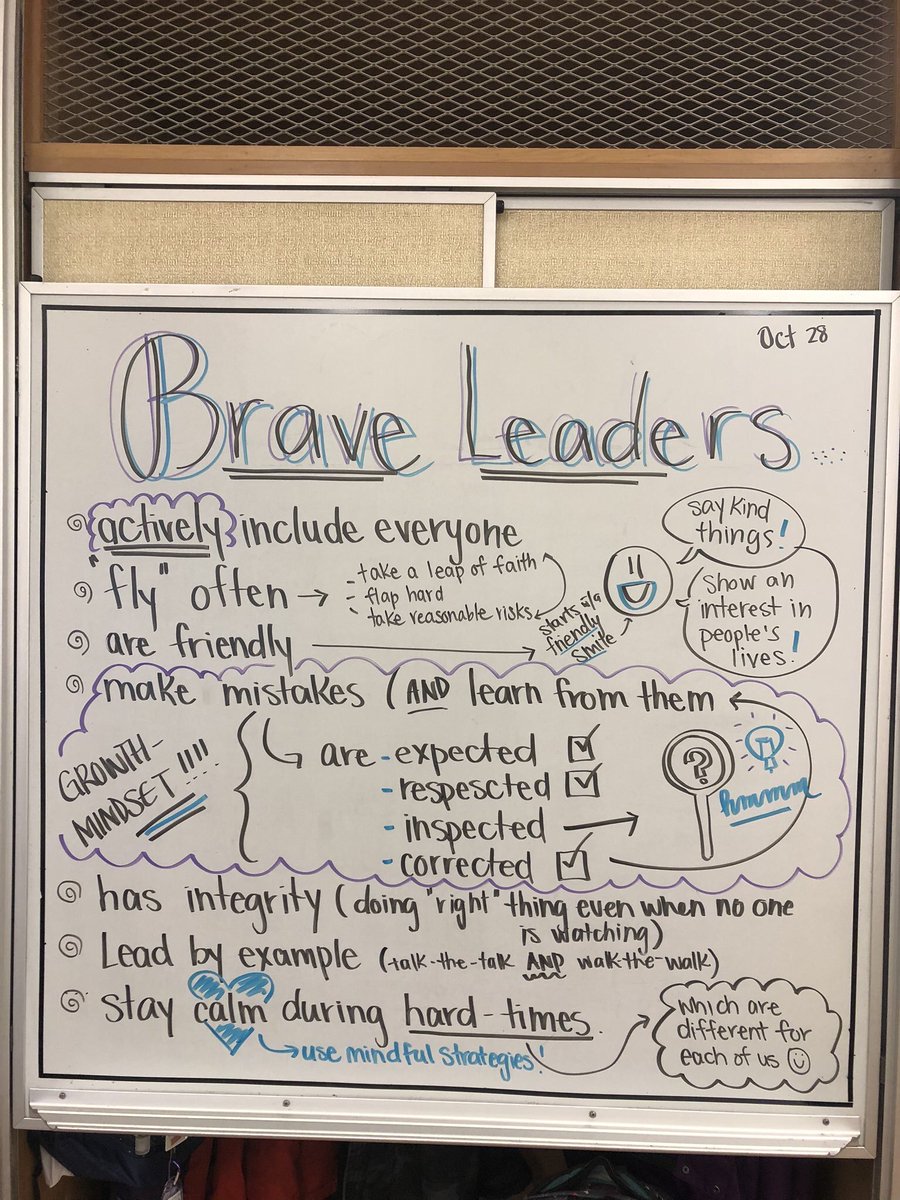 Oct 28
Brave Leaders.....
actively include everyone
"fly" often → - take a leap of faith
- flap hard
- take reasonable risks
are friendly
starts w/a
friendly
smile
say kind
things!
show an
interest in
people's
lives!
make mistakes (AND learn from them
GROWTH-
MINDSET!!!!
are - expected
- respescted
- inspected
- corrected
?
hmmm
has integrity (doing "right" thing even when no one
is watching)
Lead by example (talk-the-talk AND walk-the-walk)
stay calm during hard-times.
use mindful strategies!
which are
different for
each of us